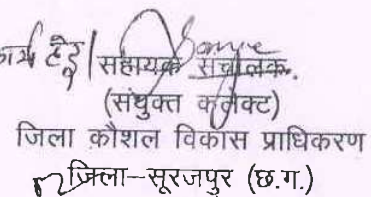 कार्य हेतु / सहायक संचालक.
(संयुक्त कलेक्टर)
जिला कौशल विकास प्राधिकरण
जिला–सूरजपुर (छ.ग.)